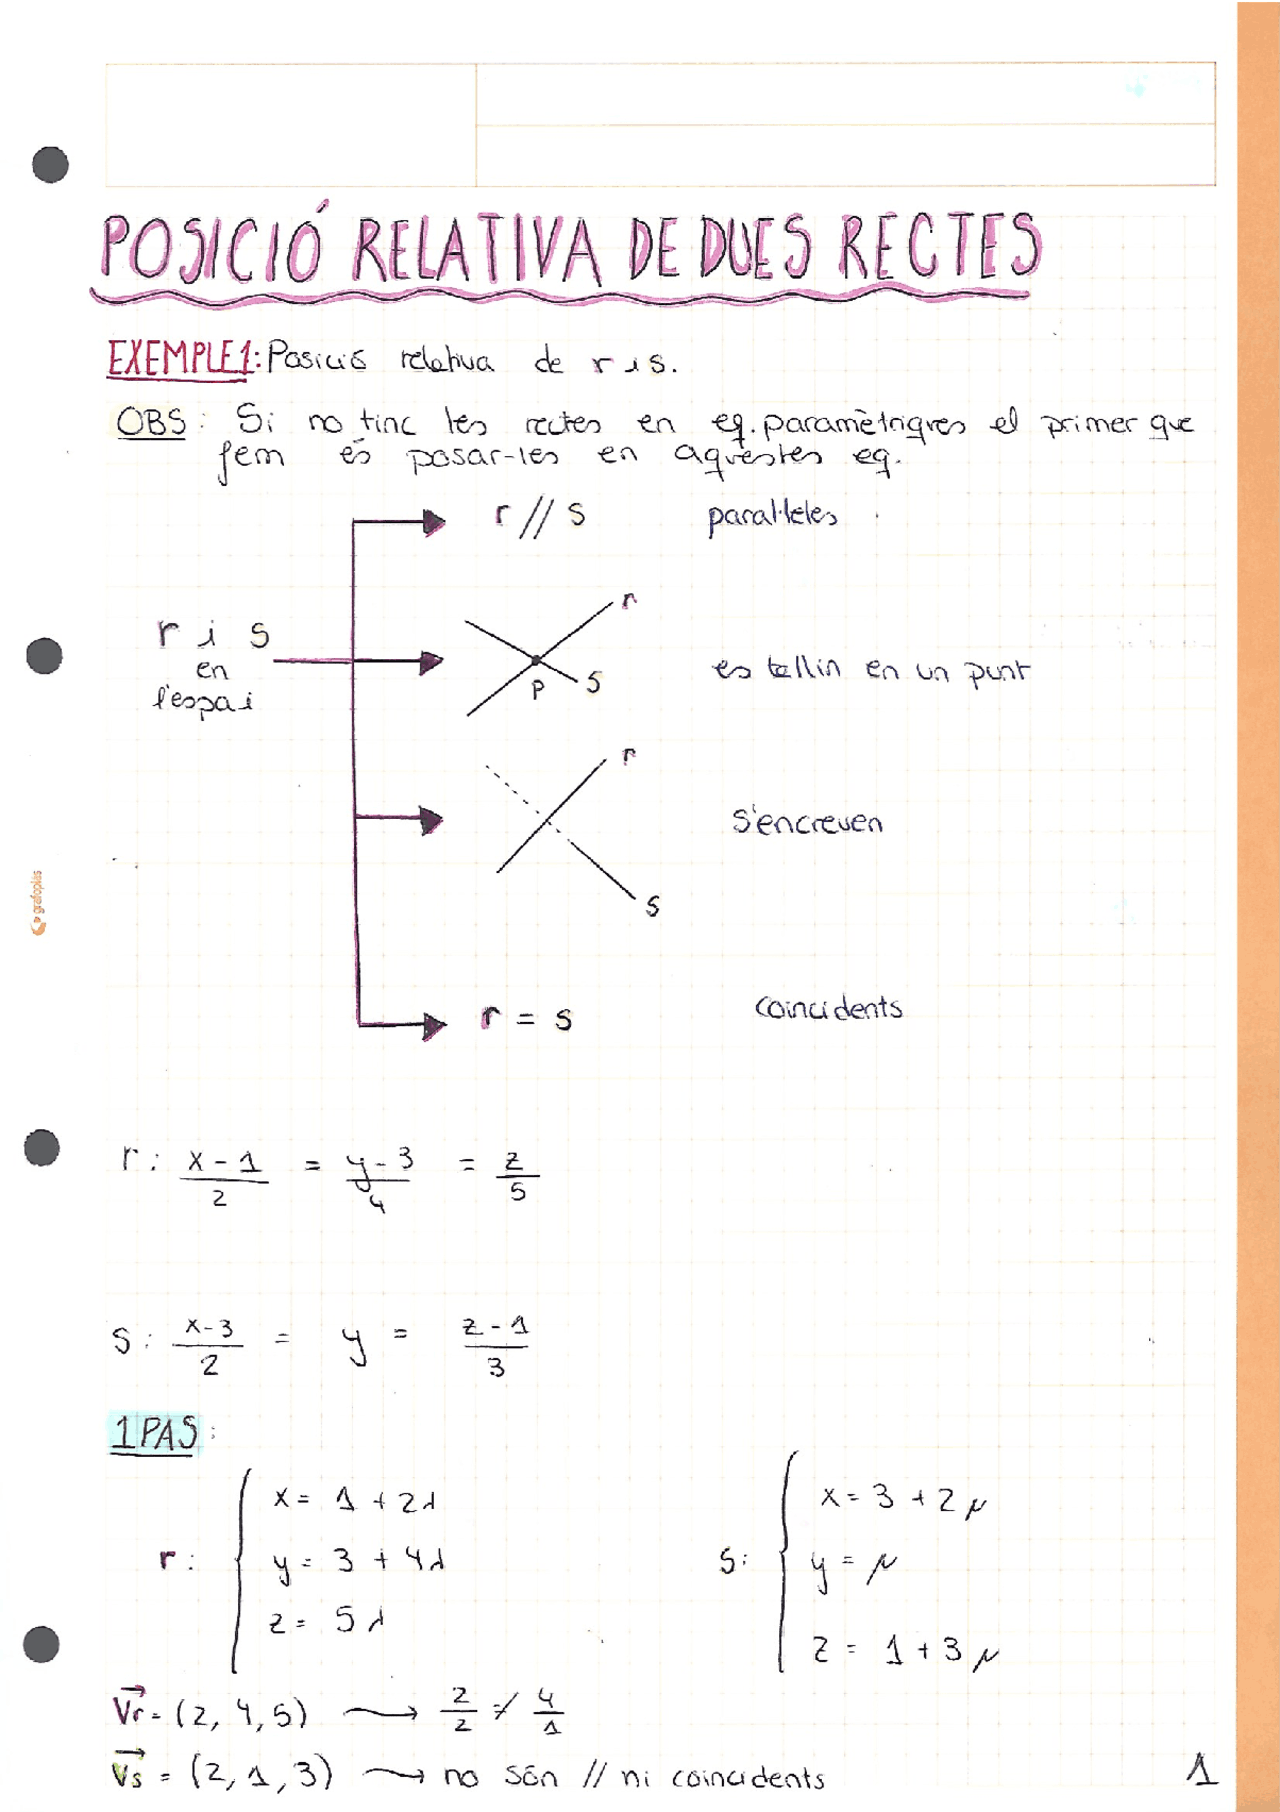 POSICIÓ RELATIVA DE DUES RECTES
EXEMPLE1: Posició relativa de r i s.
OBS: Si no tinc les rectes en eq. paramètriques el primer que
fem és posar-les en aquestes eq.
r // s paral·leles
r
r i s
en
l'espai
P
s
es tallin en un punt
r
s'encreuen
s
grafoplás
r = s coincidents
r: x-1/2 = y-3/4 = z/5
s: x-3/2 = y = z-1/3
1 PAS:
r: { x = 1 + 2λ
y = 3 + 4λ
z = 5λ
s: { x = 3 + 2μ
y = μ
z = 1 + 3μ
Vr = (2, 4, 5) → 2/2 ≠ 4/1
Vs = (2, 1, 3) → no són // ni coincidents
1